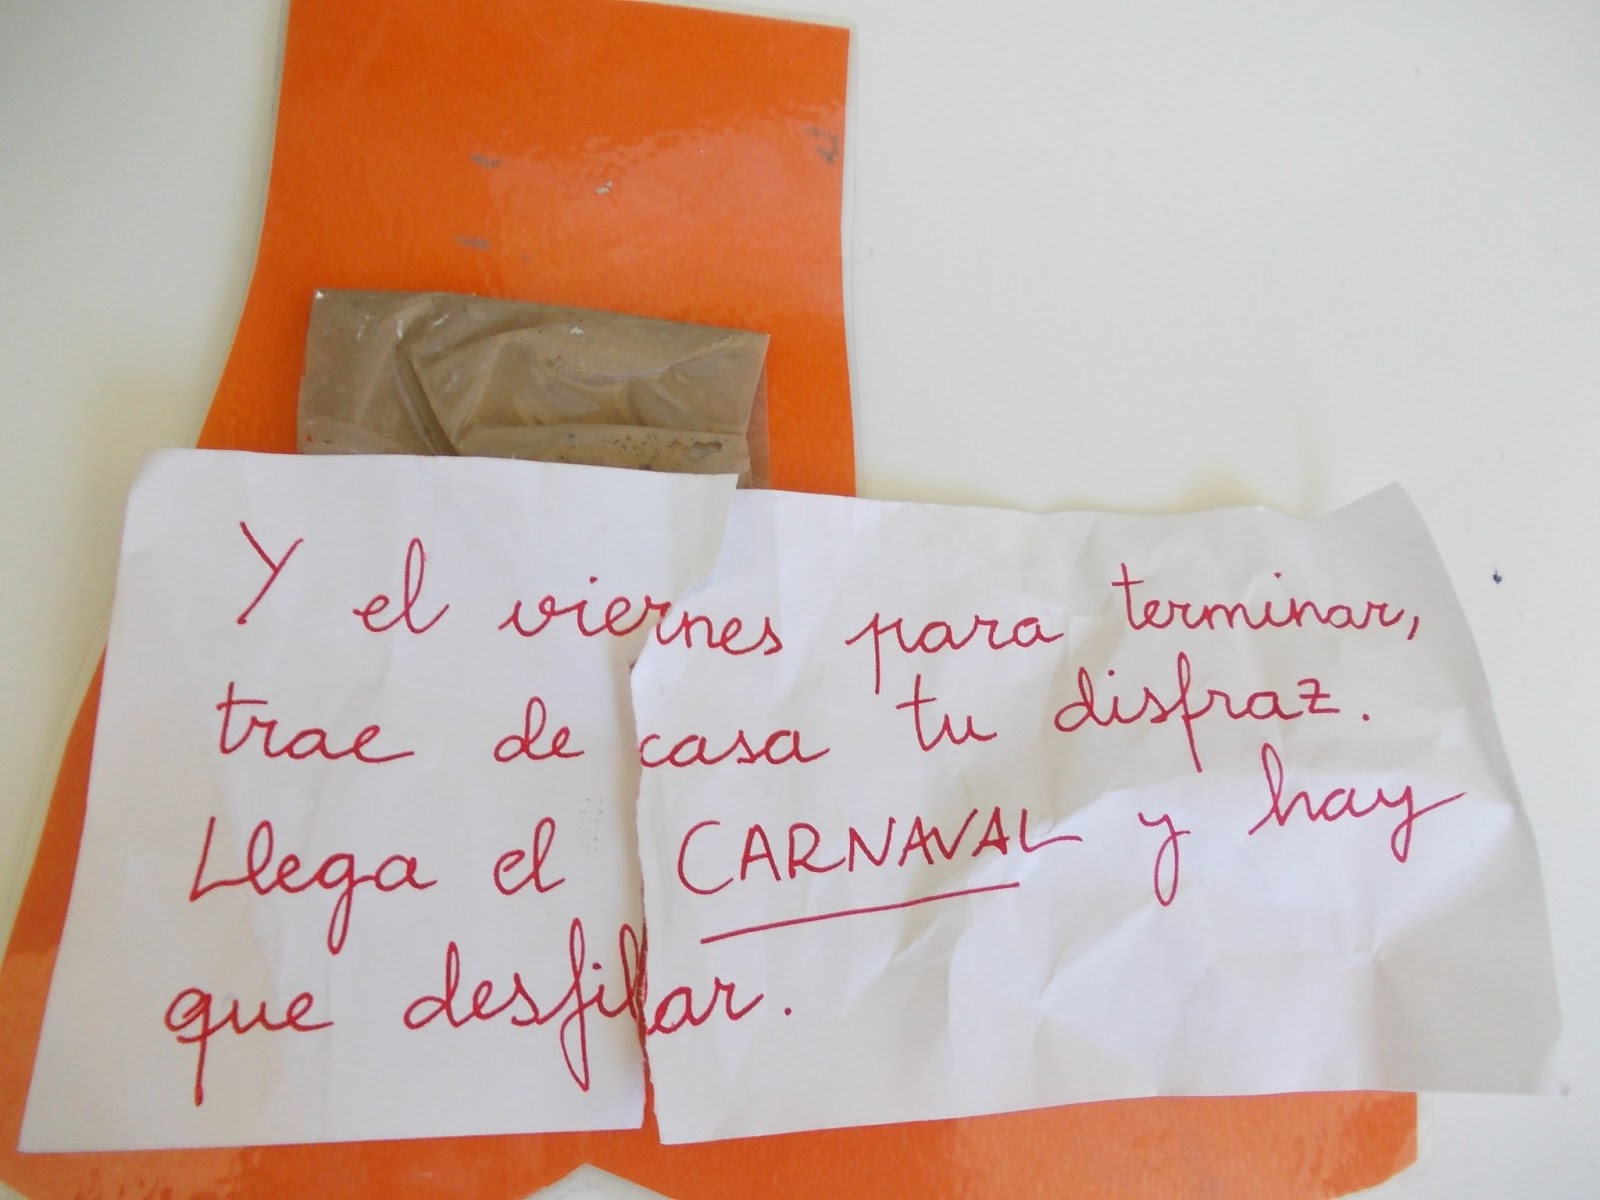 Y el viernes para terminar,
trae de casa tu disfraz.
Llega el CARNAVAL y hay
que desfilar.